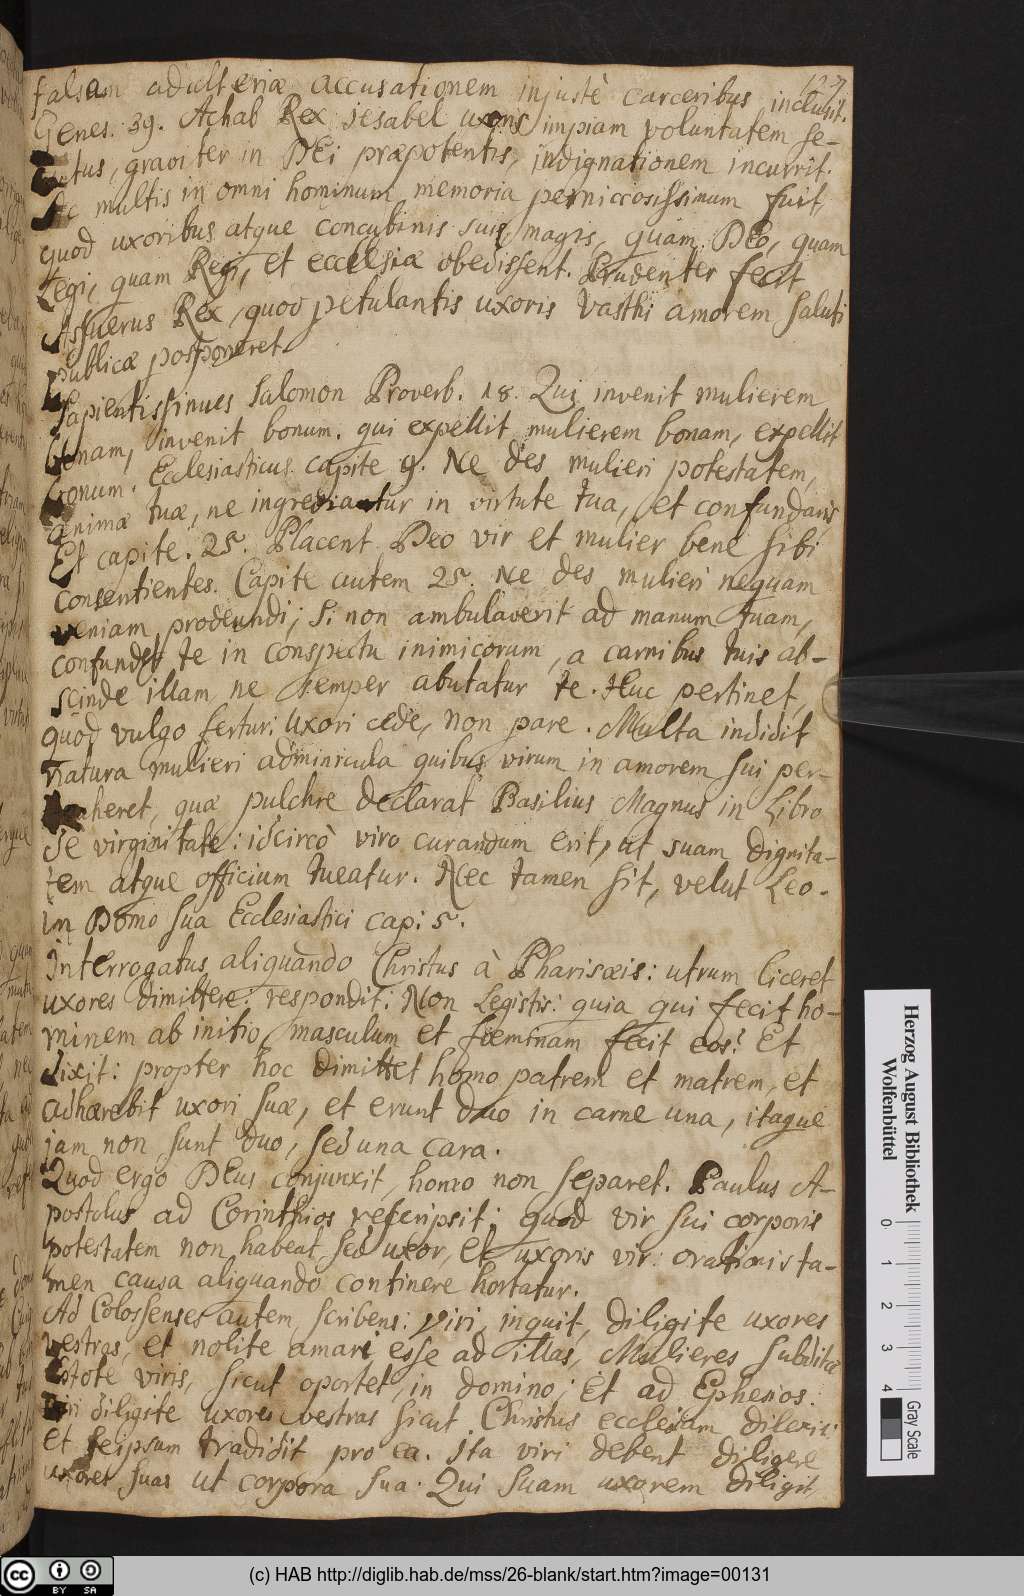 127
falsam adulteriæ accusationem injustè carceribus inclusit.
Genes. 39. Achab Rex Jesabel uxoris impiam voluntatem se-
cutus, graviter in DEi præpotentis, indignationem incurrit.
Ac multis in omni hominum memoria perniciosissimum fuit,
quod uxoribus atque concubinis suis magis, quam DEo, quam
legi, quam Regi, et ecclesiæ obedissent. Prudenter fecit
Assuerus Rex, quod petulantis uxoris Vasthi amorem saluti
publicæ postponeret.
Sapientissimus Salomon Proverb. 18. Qui invenit mulierem
bonam, invenit bonum. qui expellit mulierem bonam, expellit
bonum. Ecclesiasticus capite 9. Ne des mulieri potestatem,
animæ tuæ, ne ingrediatur in virtute tua, et confundaris
Et capite. 25. Placent Deo vir et mulier bene sibi
consentientes. Capite autem 25. Ne des mulieri nequam
veniam prodeundi, si non ambulaverit ad manum tuam,
confundet te in conspectu inimicorum, a carnibus tuis ab-
scinde illam ne semper abutatur te. Huc pertinet,
quod vulgo fertur: Uxori cede, non pare. Multa indidit
natura mulieri adminicula quibus virum in amorem sui per-
traheret, quæ pulchre declarat Basilius Magnus in Libro
de virginitate: idcircò viro curandum erit, ut suam dignita-
tem atque officium tueatur. Nec tamen sit, velut Leo.
in Domo sua Ecclesiastici cap: 5.
Interrogatus aliquando Christus à Pharisæis: utrum liceret
uxores dimittere: respondit: Non Legistis: quia qui fecit ho-
minem ab initio, masculum et foeminam fecit eos? Et
dixit: propter hoc dimittet homo patrem et matrem, et
adhærebit uxori suæ, et erunt duo in carne una, itaque
jam non sunt duo, sed una cara.
Quod ergo DEus conjunxit, homo non separet. Paulus A-
postolus ad Corinthios rescripsit: quod vir sui corporis
potestatem non habeat, sed uxor, et uxoris vir: orationis ta-
men causa aliquando continere hortatur.
Ad Colossenses autem scribens: Viri, inquit, diligite uxores
vestras, et nolite amari esse ad illas, Mulieres subditæ
Estote viris, sicut oportet, in domino; Et ad Ephesios.
Viri diligite uxores vestras sicut Christus ecclesiam dilexit:
et seipsum tradidit pro ea. Ita viri debent diligere
uxores suas ut corpora sua. Qui suam uxorem diligit
Herzog August Bibliothek
Wolfenbüttel
0 1 2 3 4
Gray Scale
cc BY SA
(c) HAB http://diglib.hab.de/mss/26-blank/start.htm?image=00131